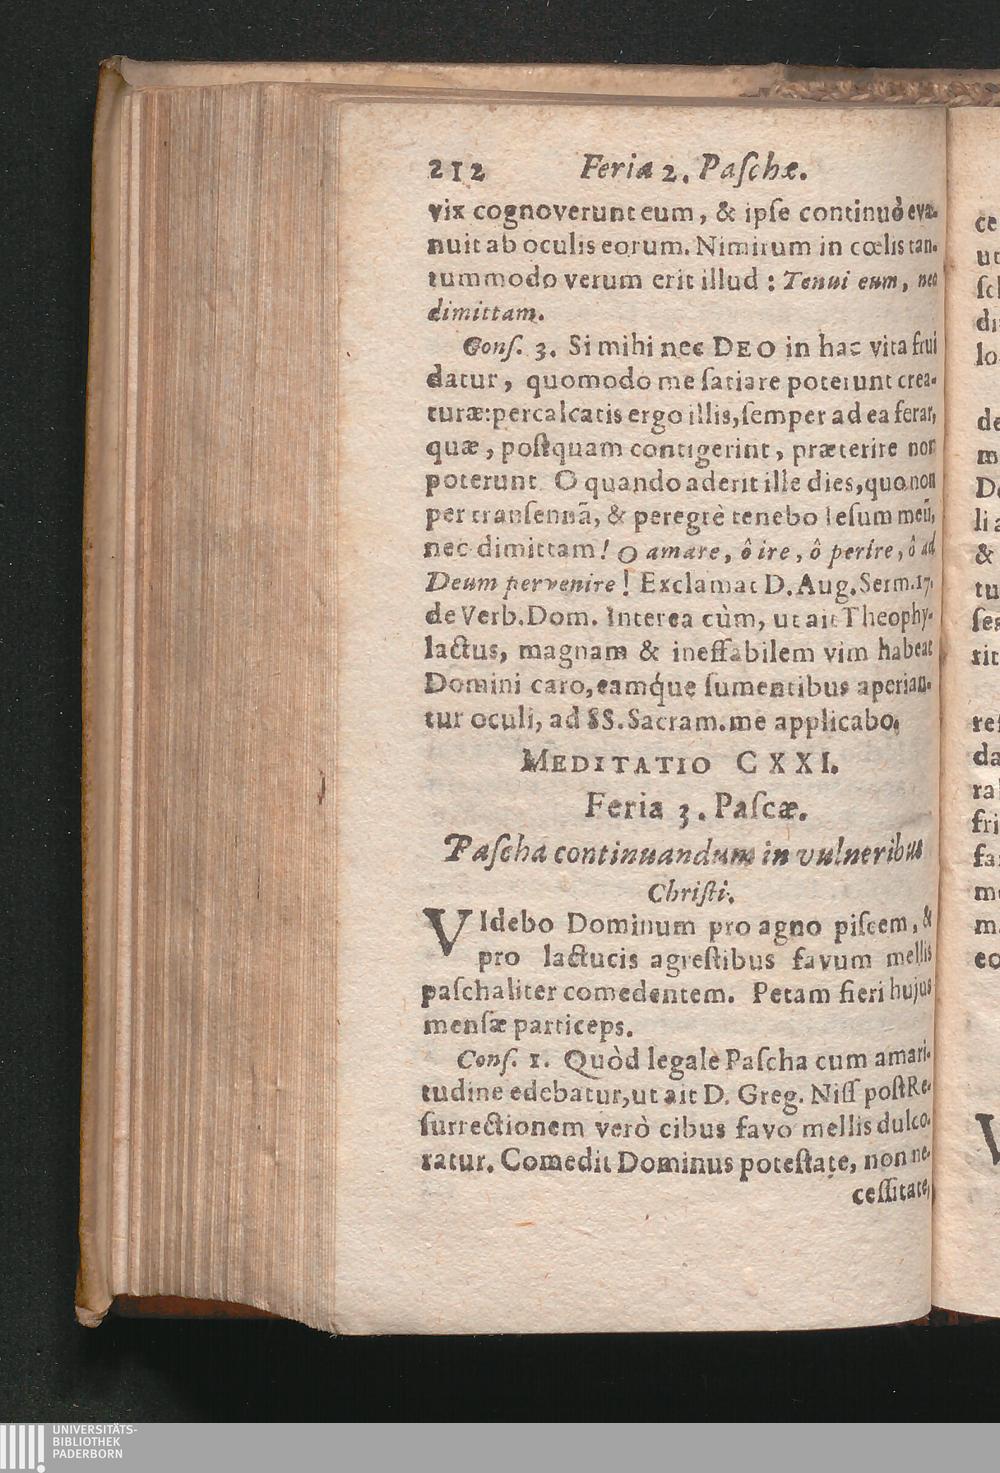 212 Feria 2. Paſchæ.
vix cognoverunt eum, & ipſe continuò eva-
nuit ab oculis eorum. Nimirum in cœlis tan-
tummodo verum erit illud : Tenui eum, nec
dimittam.
Conſ. 3. Si mihi nec DEO in hac vita frui
datur, quomodo me ſatiare poterunt crea-
turæ: percalcatis ergo illis, ſemper ad ea ferar,
quæ, poſtquam contigerint, præterire non
poterunt O quando aderit ille dies, quo non
per tranſennã, & peregrè tenebo Ieſum meũ,
nec dimittam! O amare, ô ire, ô perire, ô ad
Deum pervenire! Exclamat D. Aug. Serm. 17.
de Verb. Dom. Interea cùm, ut ait Theophy-
lactus, magnam & ineffabilem vim habeat
Domini caro, eamq́ue ſumentibus aperian-
tur oculi, ad SS. Sacram. me applicabo.
MEDITATIO CXXI.
Feria 3. Paſcæ.
Paſcha continuandum in vulneribus
Chriſti.
VIdebo Dominum pro agno piſcem, &
pro lactucis agreſtibus favum mellis
paſchaliter comedentem. Petam fieri hujus
menſæ particeps.
Conſ. 1. Quòd legale Paſcha cum amari-
tudine edebatur, ut ait D. Greg. Niſſ poſt Re-
ſurrectionem verò cibus favo mellis dulco-
ratur. Comedit Dominus poteſtate, non ne-
ceſſitate,
ce
ut
ſcl
di
lo
de
m
De
li a
&
tu
ſes
rit
reſ
da
ral
fri
fa
me
m
eo
V
UNIVERSITÄTS-
BIBLIOTHEK
PADERBORN